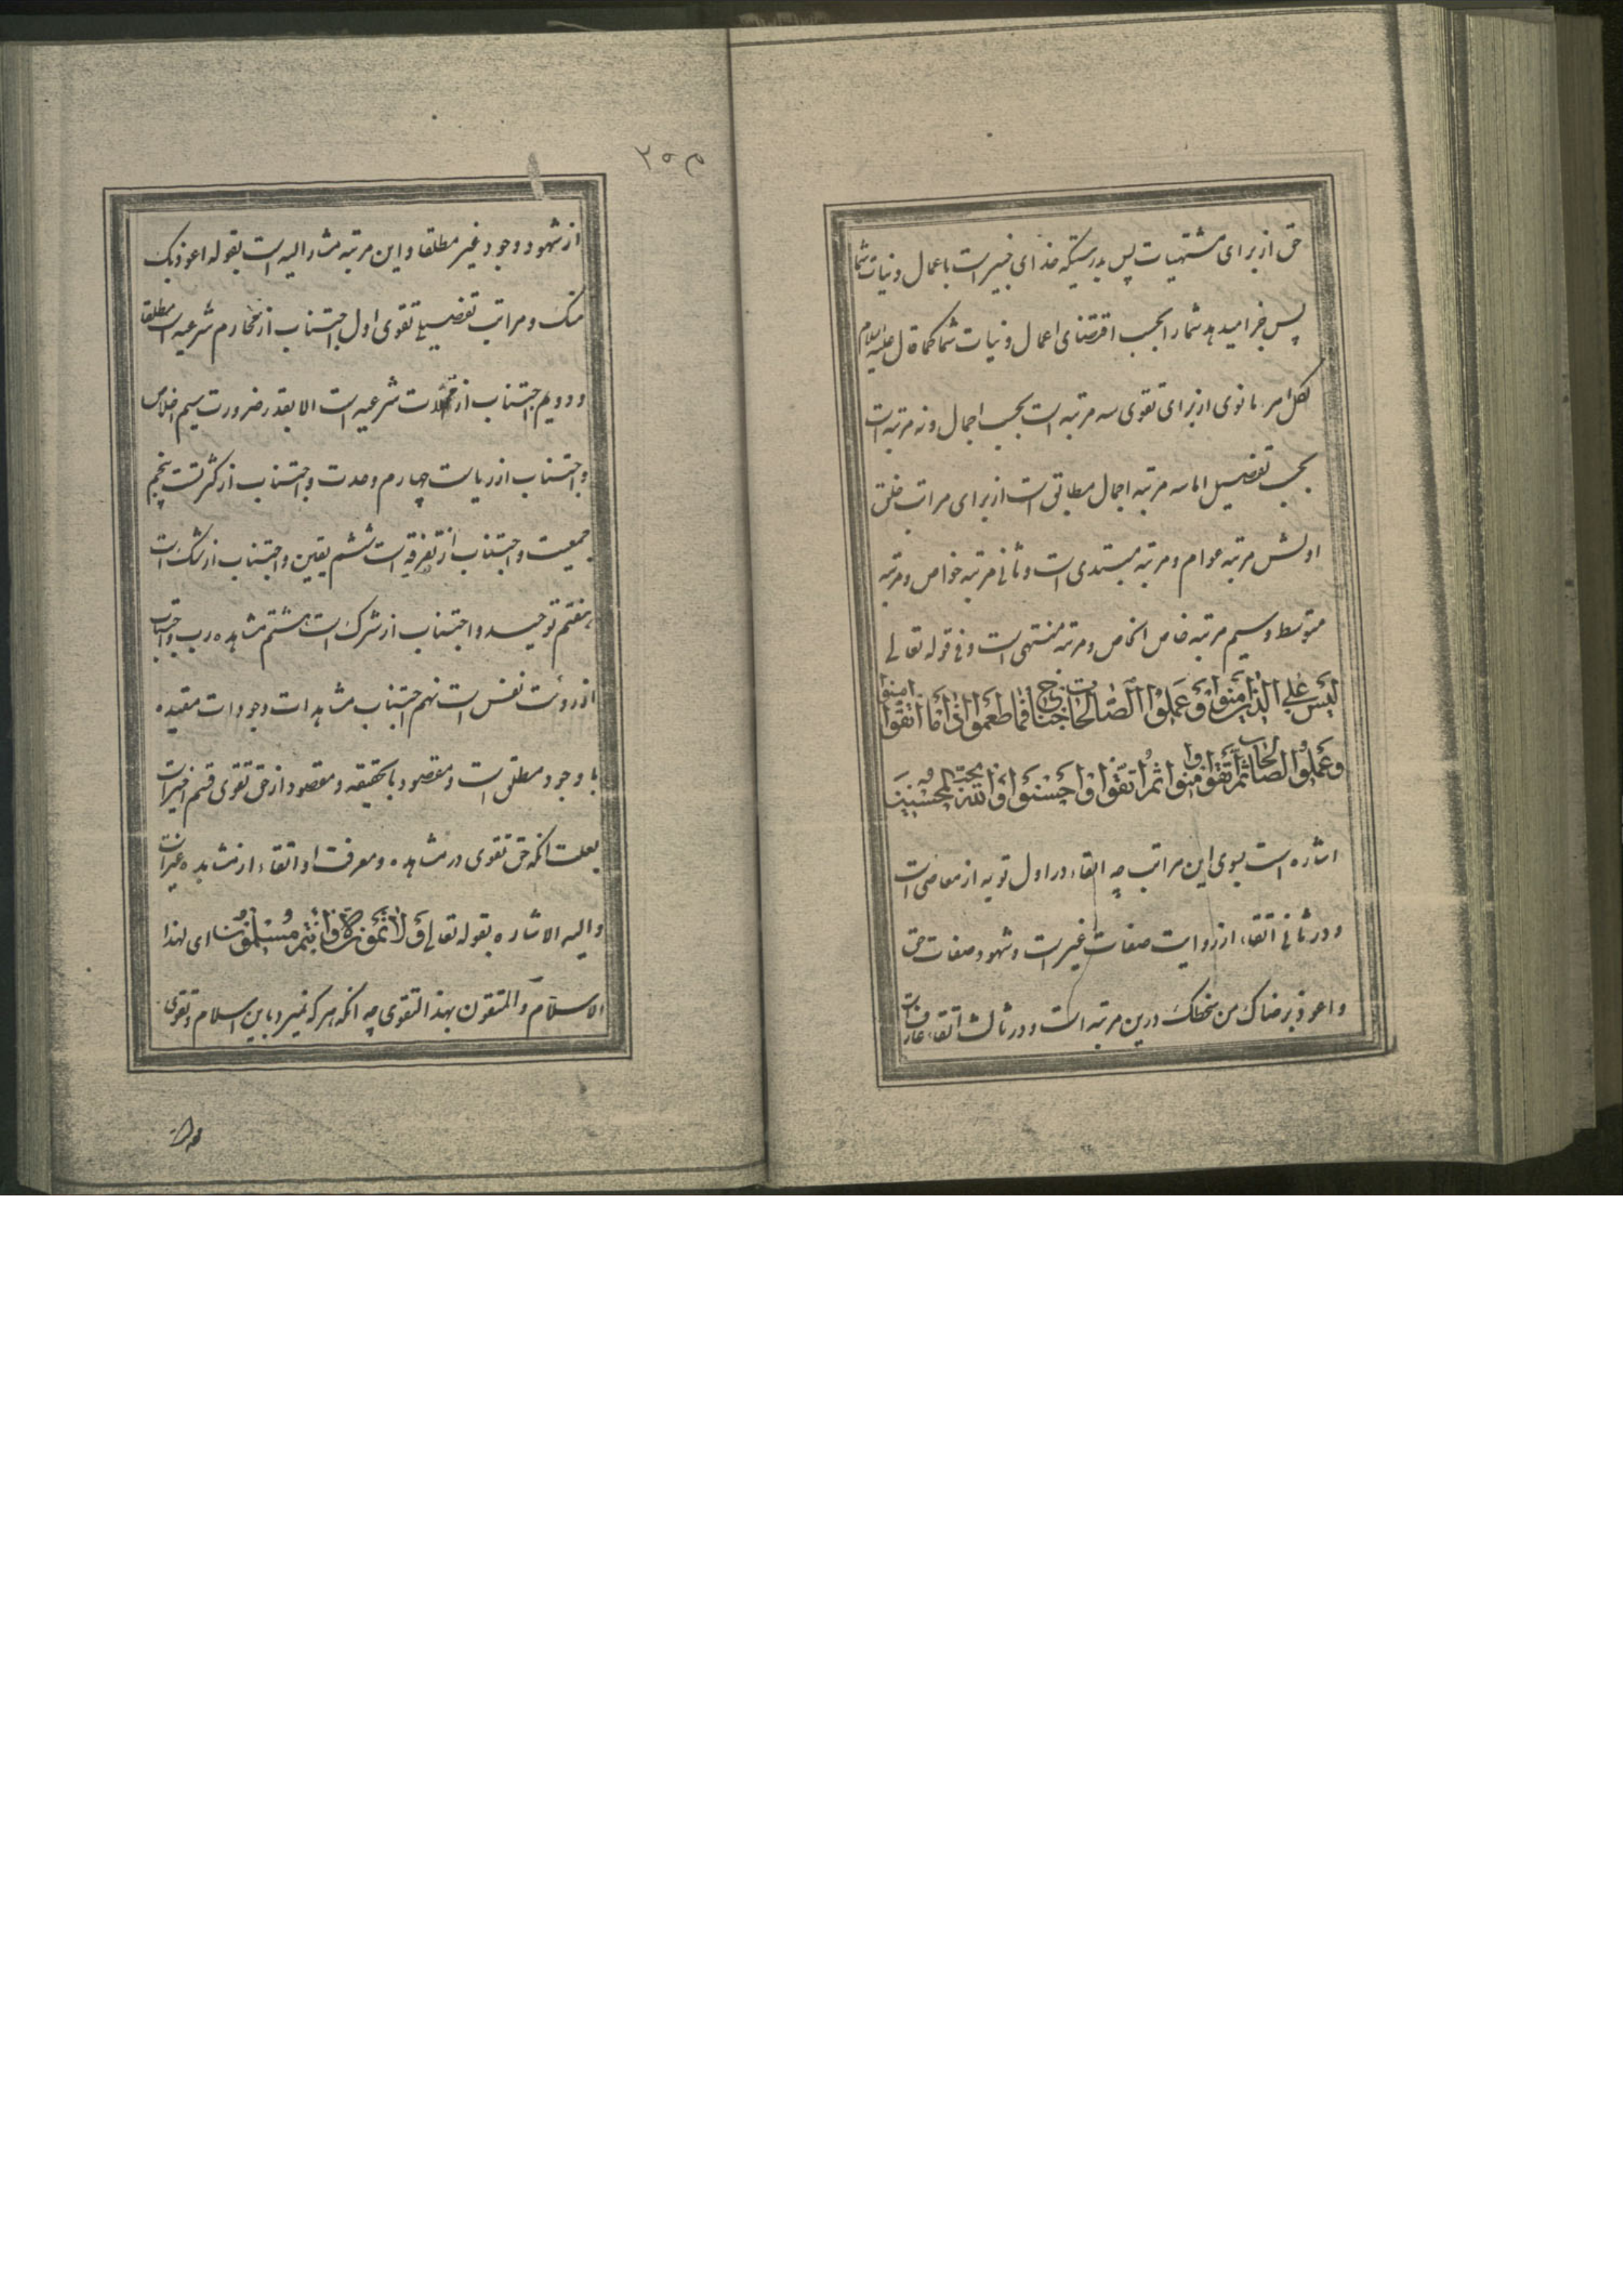 حق از برای مشتهیات پس بدرستیکه خدای خبیر است باعمال و نیات شما
پس جزا میدهد شما را بحسب اقتضای اعمال و نیات شما کما قال علیه السلام
لکل امرء ما نوی از برای تقوی سه مرتبه است بحسب اجمال و نه مرتبه است
بحسب تفصیل اما سه مرتبه اجمال مطابق است از برای مراتب خلق
اولش مرتبه عوام و مرتبه مبتدی است و ثانی مرتبه خواص و مرتبه
متوسط و سیم مرتبه خاص الخاص و مرتبه منتهی است و فی قوله تعالی
لَيْسَ عَلَى الَّذينَ امَنُوا وَ عَمِلُوا الصَّالِحَاتِ جُنَاحٌ فيمَا طَعِمُوا اِذَا مَا اتَّقَوْا وَ امَنُوا
وَ عَمِلُوا الصَّالِحَاتِ ثُمَّ اتَّقَوْا وَ امَنُوا ثُمَّ اتَّقَوْا وَ اَحْسَنُوا وَ اللّهُ يُحِبُّ الْمُحْسِنينَ
اشاره است بسوی این مراتب چه اتقاء در اول توبه از معاصی است
و در ثانی اتقاء از روایت صفات غیر است و شهود صفات حق
و اعوذ برضاک من سخطک درین مرتبه است و در ثالث اتقاء عارفانست
۲۵۸
از شهود وجود غیر مطلقا و این مرتبه مشار الیه است بقوله اعوذ بک
منک و مراتب تفصیلی تقوی اول اجتناب از محارم شرعیه است مطلقا
و دویم اجتناب از محللات شرعیه است الا بقدر ضرورت سیم اخلاص
و اجتناب از ریاست چهارم وحدت و اجتناب از کثرتست پنجم
جمعیت و اجتناب از تفرقه است ششم یقین و اجتناب از شک است
هفتم توحید و اجتناب از شرک است هشتم مشاهده رب و اجتناب
از رؤیت نفس است نهم اجتناب مشاهدات وجودات مقیده
با وجود مطلق است و مقصود بالحقیقه و مقصود از حق تقوی قسم اخیر است
بعلت انکه حق تقوی در مشاهده و معرفت او اتقاء از مشاهده غیر است
و الیه الاشاره بقوله تعالی وَ لَا تَمُوتُنَّ اِلَّا وَ اَنْتُمْ مُسْلِمُونَ ای لهذا
الاسلام و المتقون بهذا التقوی چه انکه هر که نمیرد باین اسلام و تقوی